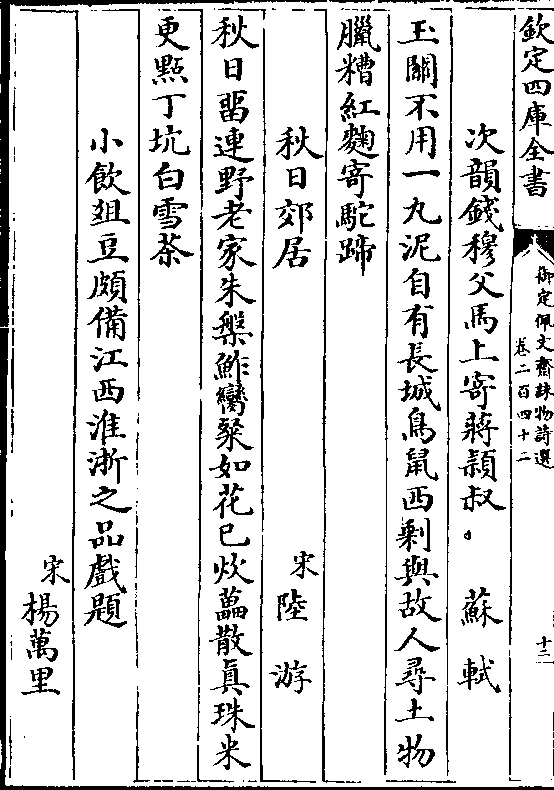 欽定四庫全書
御定佩文齋詠物詩選
卷二百四十二
次韻錢穆父馬上寄蔣穎叔。 蘇軾
玉關不用一丸泥自有長城鳥鼠西剩與故人尋土物
臘糟紅麴寄駝蹄
秋日郊居 宋陸游
秋日畱連野老家朱槃鮓臠粲如花已炊藟散真珠米
更點丁坑白雪茶
小飲俎豆頗備江西淮浙之品戲題
宋楊萬里